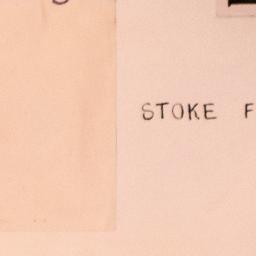 STOKE F